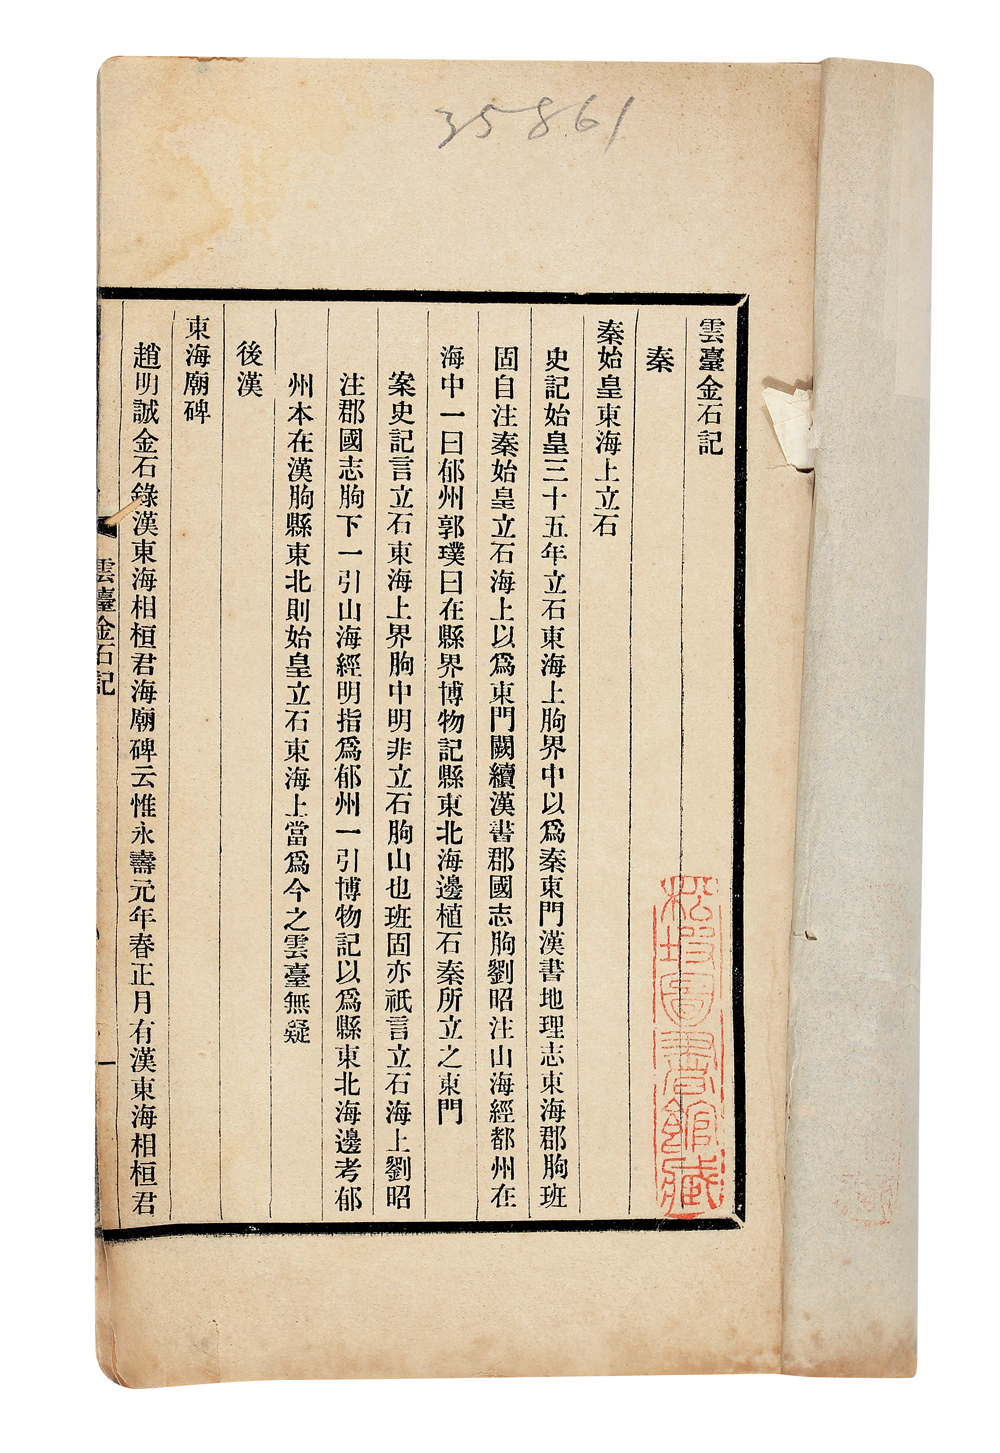 35861
雲臺金石記
秦
秦始皇東海上立石
史記始皇三十五年立石東海上朐界中以爲秦東門漢書地理志東海郡朐班
固自注秦始皇立石海上以爲東門闕續漢書郡國志朐劉昭注山海經都州在
海中一曰郁州郭璞曰在縣界博物記縣東北海邊植石秦所立之東門
案史記言立石東海上界朐中明非立石朐山也班固亦祇言立石海上劉昭
注郡國志朐下一引山海經明指爲郁州一引博物記以爲縣東北海邊考郁
州本在漢朐縣東北則始皇立石東海上當爲今之雲臺無疑
後漢
東海廟碑
趙明誠金石錄漢東海相桓君海廟碑云惟永壽元年春正月有漢東海相桓君
雲臺金石記
一
松坡圖書館藏